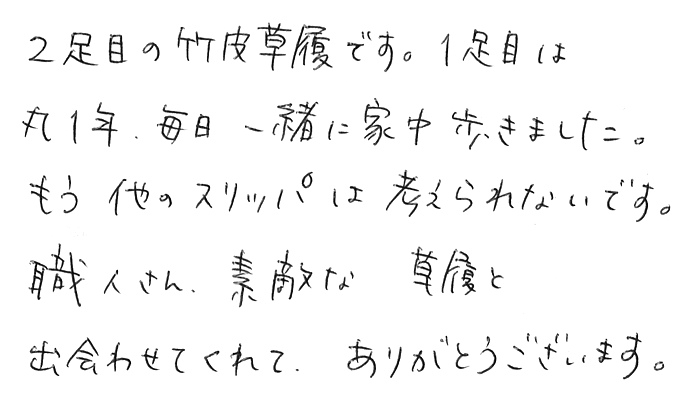 2足目の竹皮草履です。1足目は
丸1年、毎日一緒に家中歩きました。
もう他のスリッパは考えられないです。
職人さん、素敵な 草履と
出会わせてくれて、ありがとうございます。